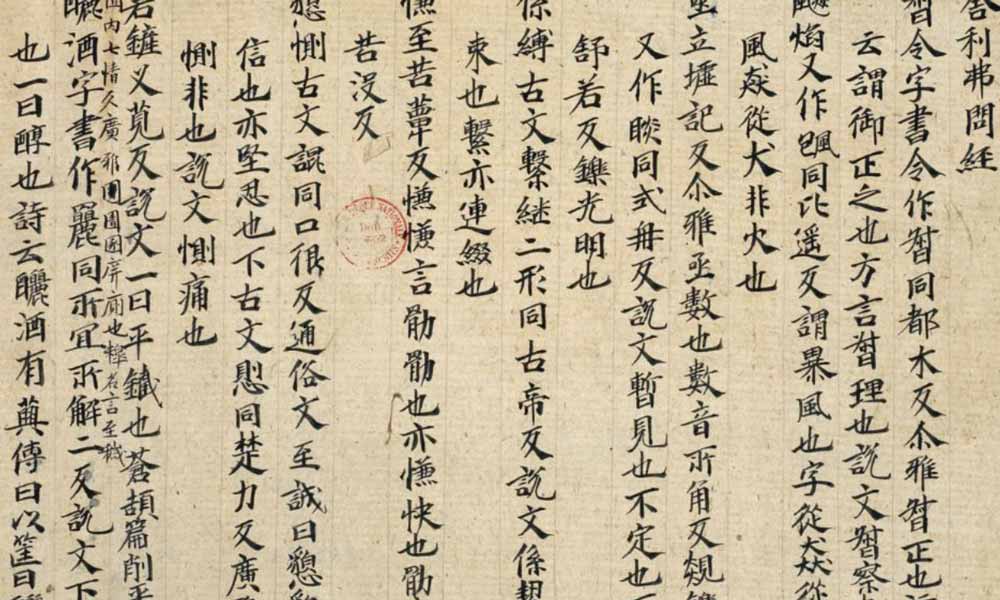 舍利弗問經
督令字書令作督同都木反尒雅督正也
云謂御正之也方言督理也說文督察
飈焰又作颮同比遥反謂暴風也字從猋從
風猋從犬非火也
亟立墟記反尒雅亟數也數音所角反覢
又作睒同式冊反說文暫見也不定也
舒若反鑠光明也
係縛古文繫継二形同古帝反說文係
束也繫亦連綴也
慊至苦蕈反慊慊言勖勖也亦慊快也勖
苦没反
懇惻古文同口很反通俗文至誠曰懇
信也亦堅忍也下古文同楚力反廣
惻非也說文惻痛也
若鏟叉莧反說文一曰平鐵也蒼頡篇削平
廣雅圊圂屏廁也釋名言至穢
曬酒字書作麗同所宜所解二反說文下
也一曰醇也詩云曬酒有藇傳曰以筐曰